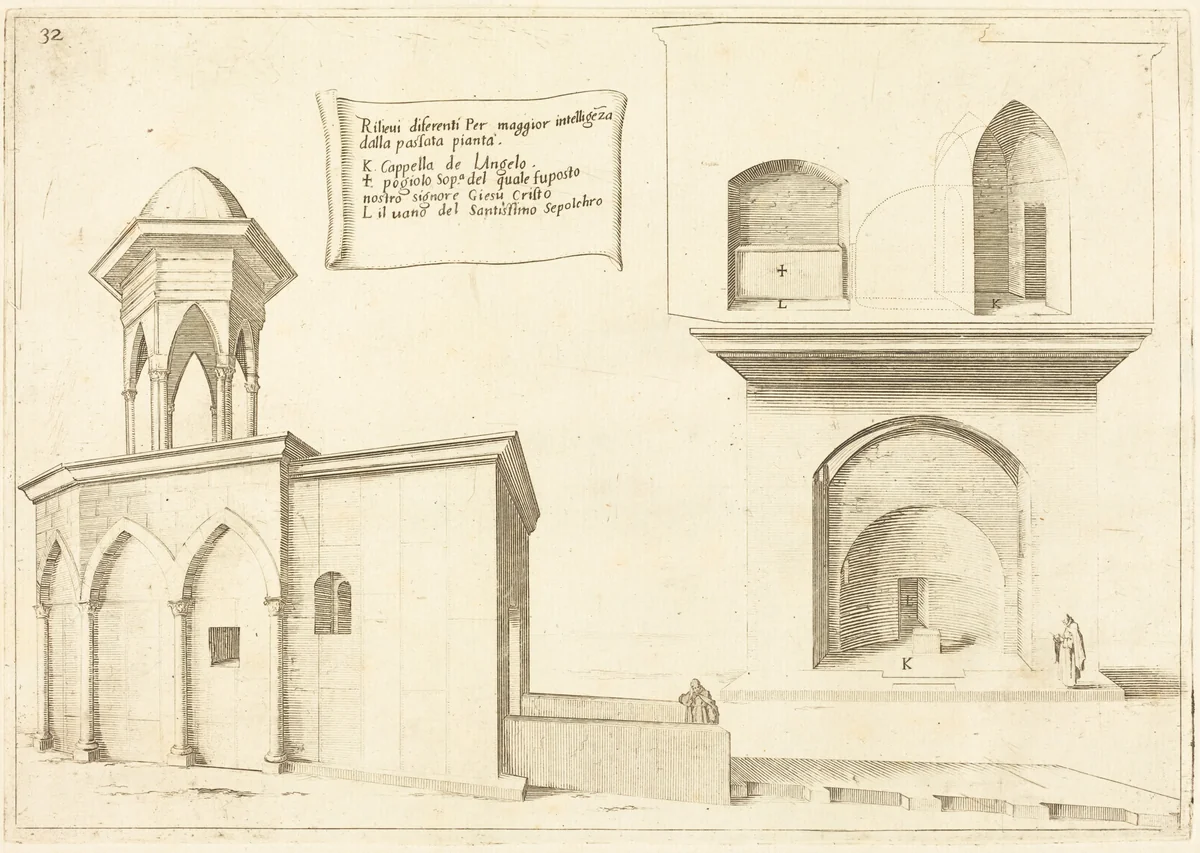 32
Rilieui diferenti Per maggior intelligẽza
dalla passata pianta.
K. Cappella de lAngelo.
✝. pogiolo Sop.ª del quale fuposto
nostro signore Giesu Cristo
L il uano del Santissimo Sepolchro
✝
L
K
L
K